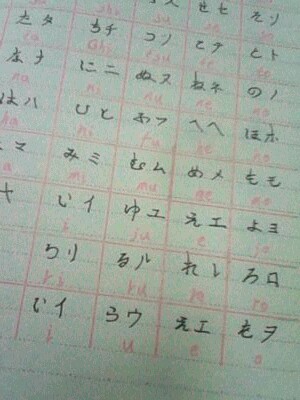 ス せセ そソ
shi su se so
たタ ちチ つツ てテ とト
ta chi tsu te to
なナ にニ ぬヌ ねネ のノ
na ni nu ne no
はハ ひヒ ふフ へヘ ほホ
ha hi fu he ho
マ みミ むム めメ もモ
mi mu me mo
ヤ いイ ゆユ えエ よヨ
i ju e jo
りリ るル れレ ろロ
ri ru re ro
いイ うウ えエ をヲ
i u e o